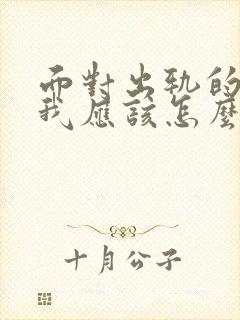 而對出軌的
我應該怎麼
十月公子